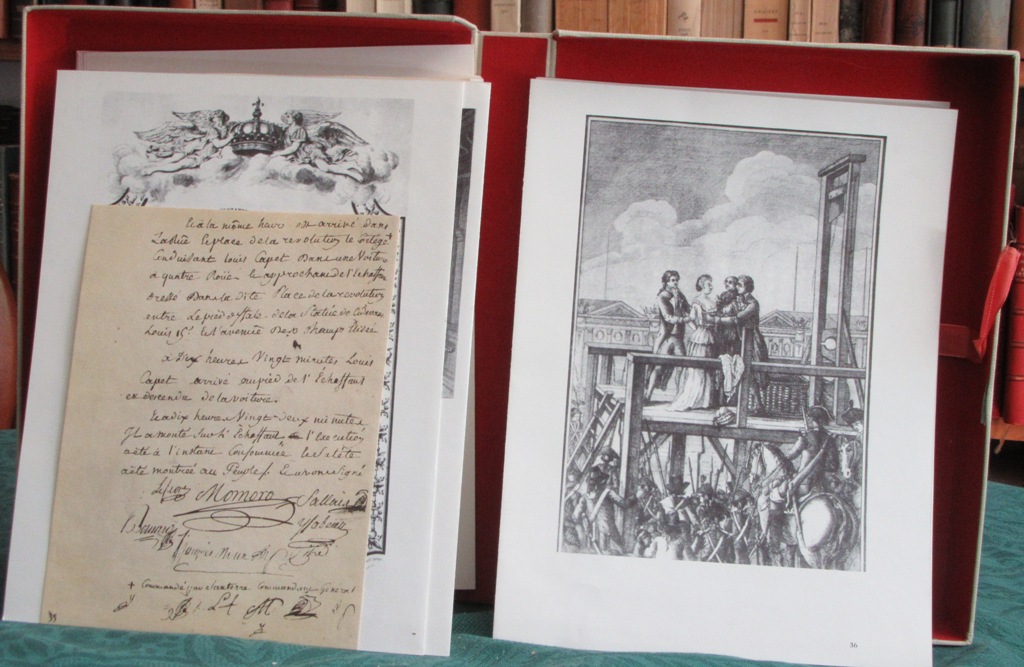 Et à la même heure est arrivé dans
La ditte place de la revolution le Cortege +
Conduisant Louis Capet dans une Voiture
a quatre Roües. Et approchant de l'Echaffau
dressé dans la dite Place de la revolution
entre Le pied d'estale de la Statüe de
Louis 15e et l'avenüe des Champs Elisée
a Dix heures Vingt minutes Louis
Capet arrivé au pied de l'Echaffaut
est descendu de la voiture.
Et a dix heures Vingt-deux minutes
Il a monté Sur l'Echaffaut et l'Execution
a été à l'instant Consommée et Sa tête
a été montrée au Peuple, Et avons signé
Lefevre Momoro Sallais
Isabeau
+ Commandé par Santerre Commandant Général
33
36